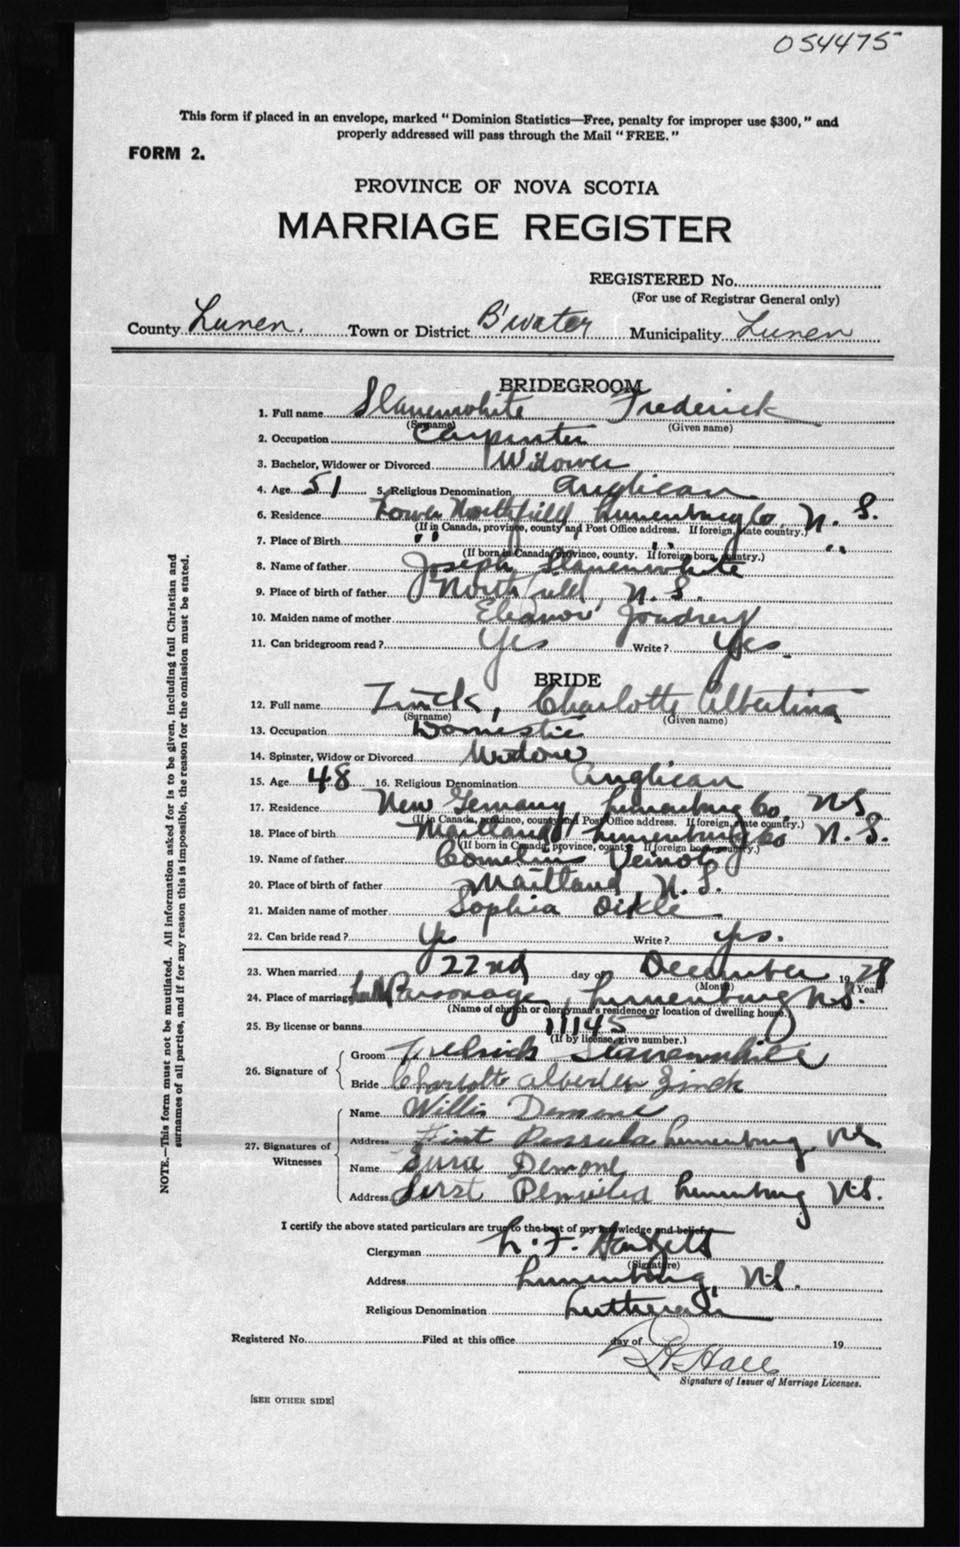 054475
This form if placed in an envelope, marked "Dominion Statistics—Free, penalty for improper use $300," and
properly addressed will pass through the Mail "FREE."
FORM 2.
PROVINCE OF NOVA SCOTIA
MARRIAGE REGISTER
REGISTERED No.
(For use of Registrar General only)
County Lunen. Town or District B'water Municipality Lunen
BRIDEGROOM
1. Full name Slauenwhite Frederick
(Surname) (Given name)
2. Occupation Carpenter
3. Bachelor, Widower or Divorced Widower
4. Age 51 5. Religious Denomination Anglican
6. Residence Lower Northfield, Lunenburg Co, N. S.
(If in Canada, province, county and Post Office address. If foreign, state country.)
7. Place of Birth " " " " " "
(If born in Canada, province, county. If foreign born, country.)
8. Name of father Joseph Slauenwhite
9. Place of birth of father Northfield, N. S.
10. Maiden name of mother Eleanor Joudrey
11. Can bridegroom read? Yes Write? Yes.
BRIDE
12. Full name Zinck, Charlotte Albertina
(Surname) (Given name)
13. Occupation Domestic
14. Spinster, Widow or Divorced Widow
15. Age 48 16. Religious Denomination Anglican
17. Residence New Germany, Lunenburg Co, N.S
(If in Canada, province, county and Post Office address. If foreign, state country.)
18. Place of birth Maitland, Lunenburg Co N. S.
(If born in Canada, province, county. If foreign born, country.)
19. Name of father Cornelius Veinot
20. Place of birth of father Maitland, N. S.
21. Maiden name of mother Sophia Oikle
22. Can bride read? Yes Write? Yes.
23. When married 22nd day of December 1928
(Month) (Year)
24. Place of marriage Parsonage, Lunenburg N.S.
(Name of church or clergyman's residence or location of dwelling house.)
25. By license or banns 11145
(If by license, give number.)
26. Signature of
Groom Fredrick Slauenwhite
Bride Charlotte Zinck
27. Signatures of Witnesses
Name Willis Demone
Address First Lunenburg N.S
Name Demone
Address First Lunenburg N.S.
I certify the above stated particulars are true to the best of my knowledge and belief.
Clergyman
(Signature)
Address Lunenburg, N.S.
Religious Denomination Lutheran
Registered No. Filed at this office day of 19
Hall
Signature of Issuer of Marriage Licenses.
[SEE OTHER SIDE]
NOTE.—This form must not be mutilated. All information asked for is to be given, including full Christian and
surnames of all parties, and if for any reason this is impossible, the reason for the omission must be stated.